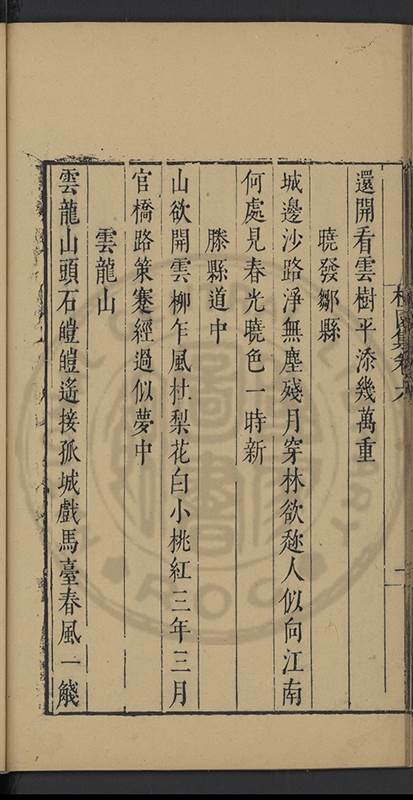 還開看雲樹平添幾萬重
曉發鄒縣
城邊沙路淨無塵殘月穿林欲趂人似向江南
何處見春光曉色一時新
滕縣道中
山欲開雲柳乍風杜梨花白小桃紅三年三月
官橋路策蹇經過似夢中
雲龍山
雲龍山頭石皚皚遙接孤城戲馬臺春風一餞